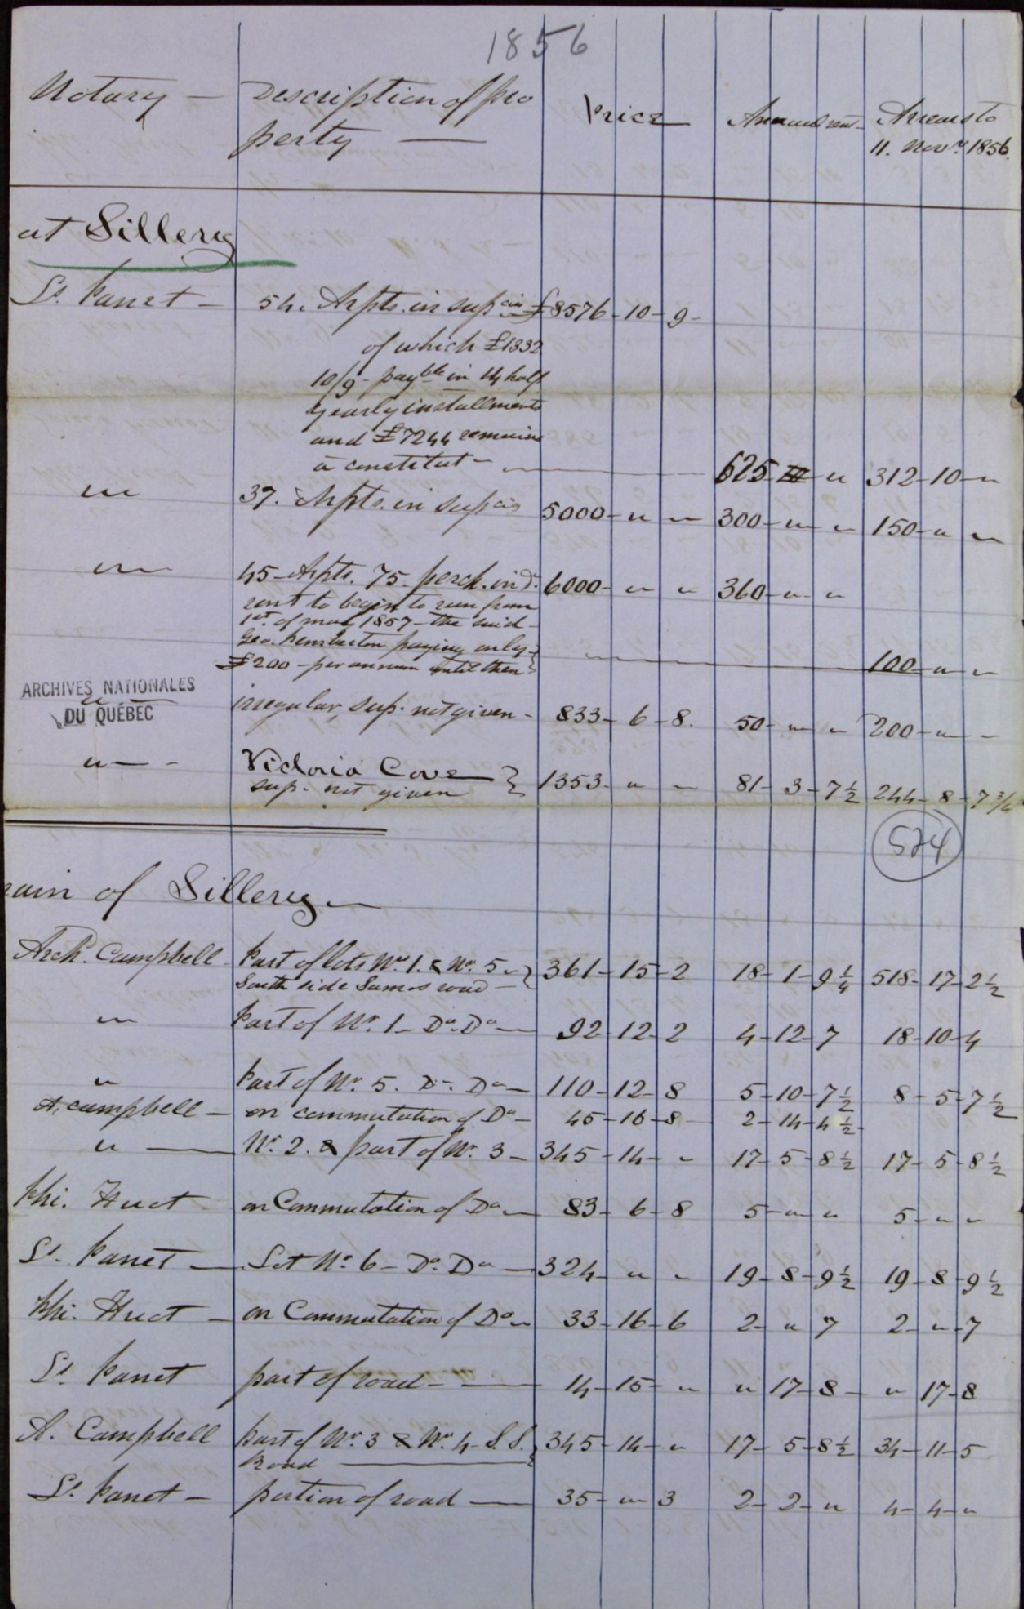 1856
Notary — Description of pro Price Annual rent Arrears to
perty — 11. Novr 1856
at Sillery
Ls. Panet — 54. Arpts. in supcies £8576-10-9-
of which £1332
10/9- payble in 14 half
yearly installments
and £7244 remains
a constitut — 625 " 312-10-"
" 37. Arpts. in supcies 5000-"-" 300-"-" 150-"-"
" 45-Arpts. 75- perch. in Do 6000-"-" 360-"-"
rent to begin to run from
1st. of may 1857- the said-
Geo. Pemberton paying only
£200- per annum until then 100-"-"
ARCHIVES NATIONALES
DU QUÉBEC
" irregular, sup. not given- 833-6-8. 50-"-" 200-"-
" Victoria Cove } 1353-"-" 81-3-7½ 244-8-7¾
sup. not given
524
main of Sillery —
Archd. Campbell- Part of lots No. 1. & No. 5 } 361-15-2 18-1-9¼ 518-17-2½
South side Samos road —
" Part of No. 1- Do. Do — 92-12-2 4-12-7 18-10-4
" Part of No. 5. Do. Do — 110-12-8 5-10-7½ 8-5-7½
A. Campbell — on commutation of Do — 45-16-8 2-14-4½
" — No. 2. & part of No. 3 — 345-14-" 17-5-8½ 17-5-8½
Phi. Huot on Commutation of Do — 83-6-8 5-"-" 5-"-"
Ls. Panet — Lot No. 6- Do. Do — 324-"-" 19-8-9½ 19-8-9½
Phi. Huot — on Commutation of Do — 33-16-6 2-"-7 2-"-7
Ls. Panet part of road — 14-15-" "-17-8- "-17-8
A. Campbell part of No. 3 & No. 4- S.S. } 345-14-" 17-5-8½ 34-11-5
Road —
Ls. Panet — portion of road — 35-"-3 2-2-" 4-4-"